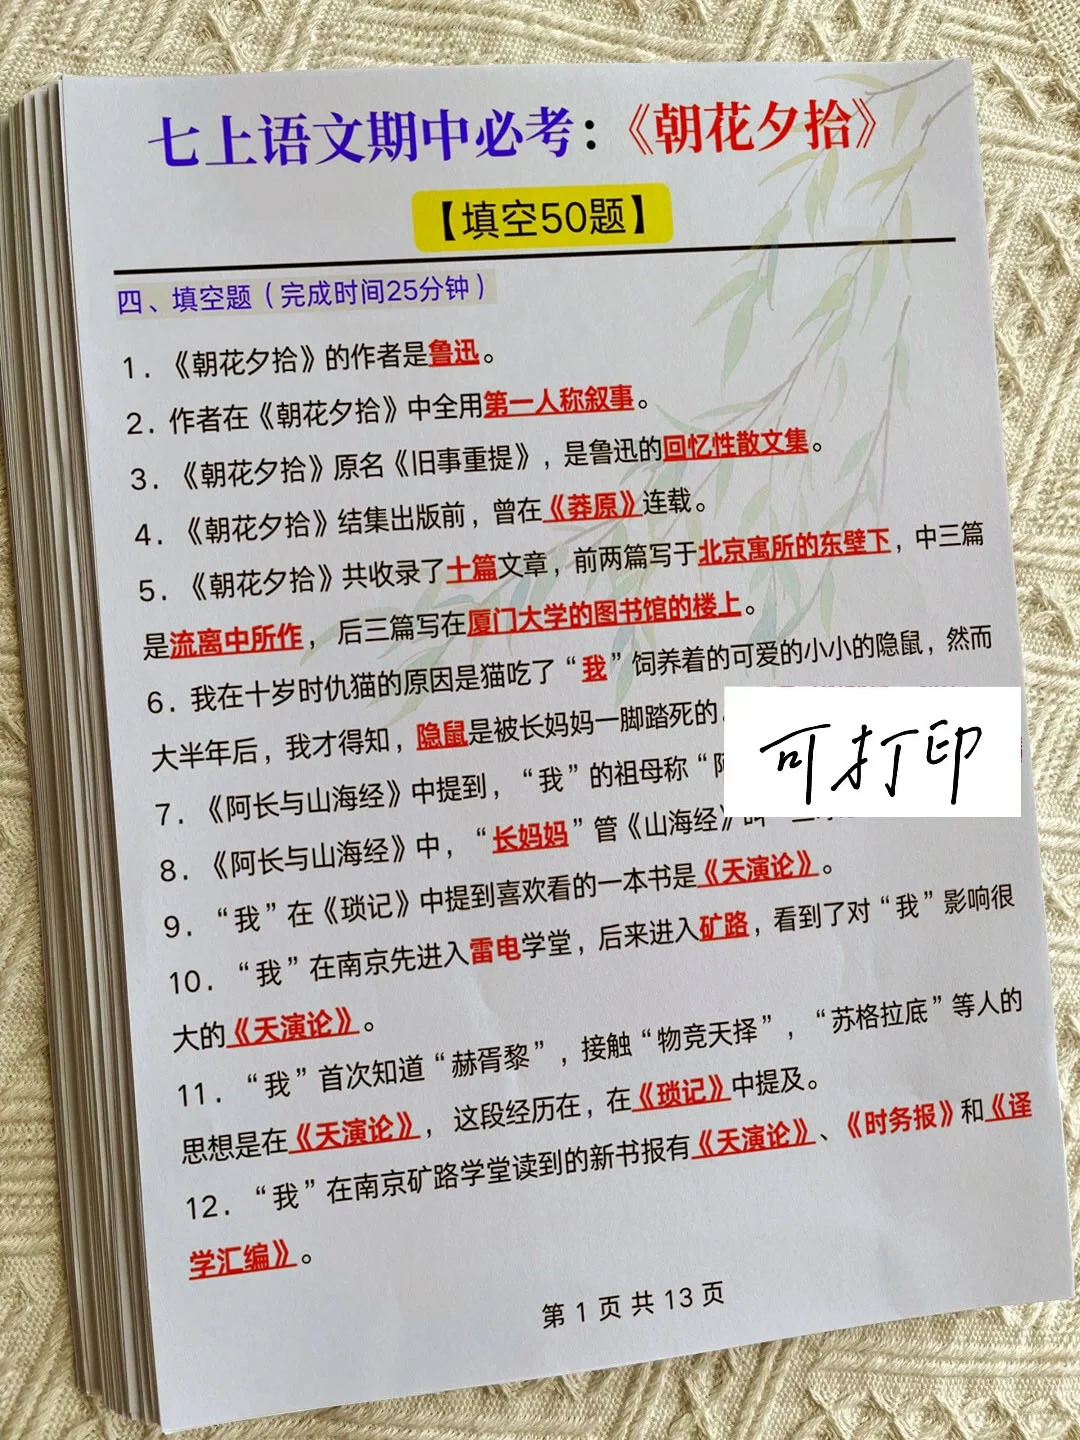 七上语文期中必考：《朝花夕拾》
【填空50题】
四、填空题（完成时间25分钟）
1．《朝花夕拾》的作者是鲁迅。
2．作者在《朝花夕拾》中全用第一人称叙事。
3．《朝花夕拾》原名《旧事重提》，是鲁迅的回忆性散文集。
4．《朝花夕拾》结集出版前，曾在《莽原》连载。
5．《朝花夕拾》共收录了十篇文章，前两篇写于北京寓所的东壁下，中三篇
是流离中所作，后三篇写在厦门大学的图书馆的楼上。
6．我在十岁时仇猫的原因是猫吃了“我”饲养着的可爱的小小的隐鼠，然而
大半年后，我才得知，隐鼠是被长妈妈一脚踏死的
可打印
7．《阿长与山海经》中提到，“我”的祖母称“
8．《阿长与山海经》中，“长妈妈”管《山海经》
9．“我”在《琐记》中提到喜欢看的一本书是《天演论》。
10．“我”在南京先进入雷电学堂，后来进入矿路，看到了对“我”影响很
大的《天演论》。
11．“我”首次知道“赫胥黎”，接触“物竞天择”，“苏格拉底”等人的
思想是在《天演论》，这段经历在，在《琐记》中提及。
12．“我”在南京矿路学堂读到的新书报有《天演论》、《时务报》和《译
学汇编》。
第 1 页 共 13 页